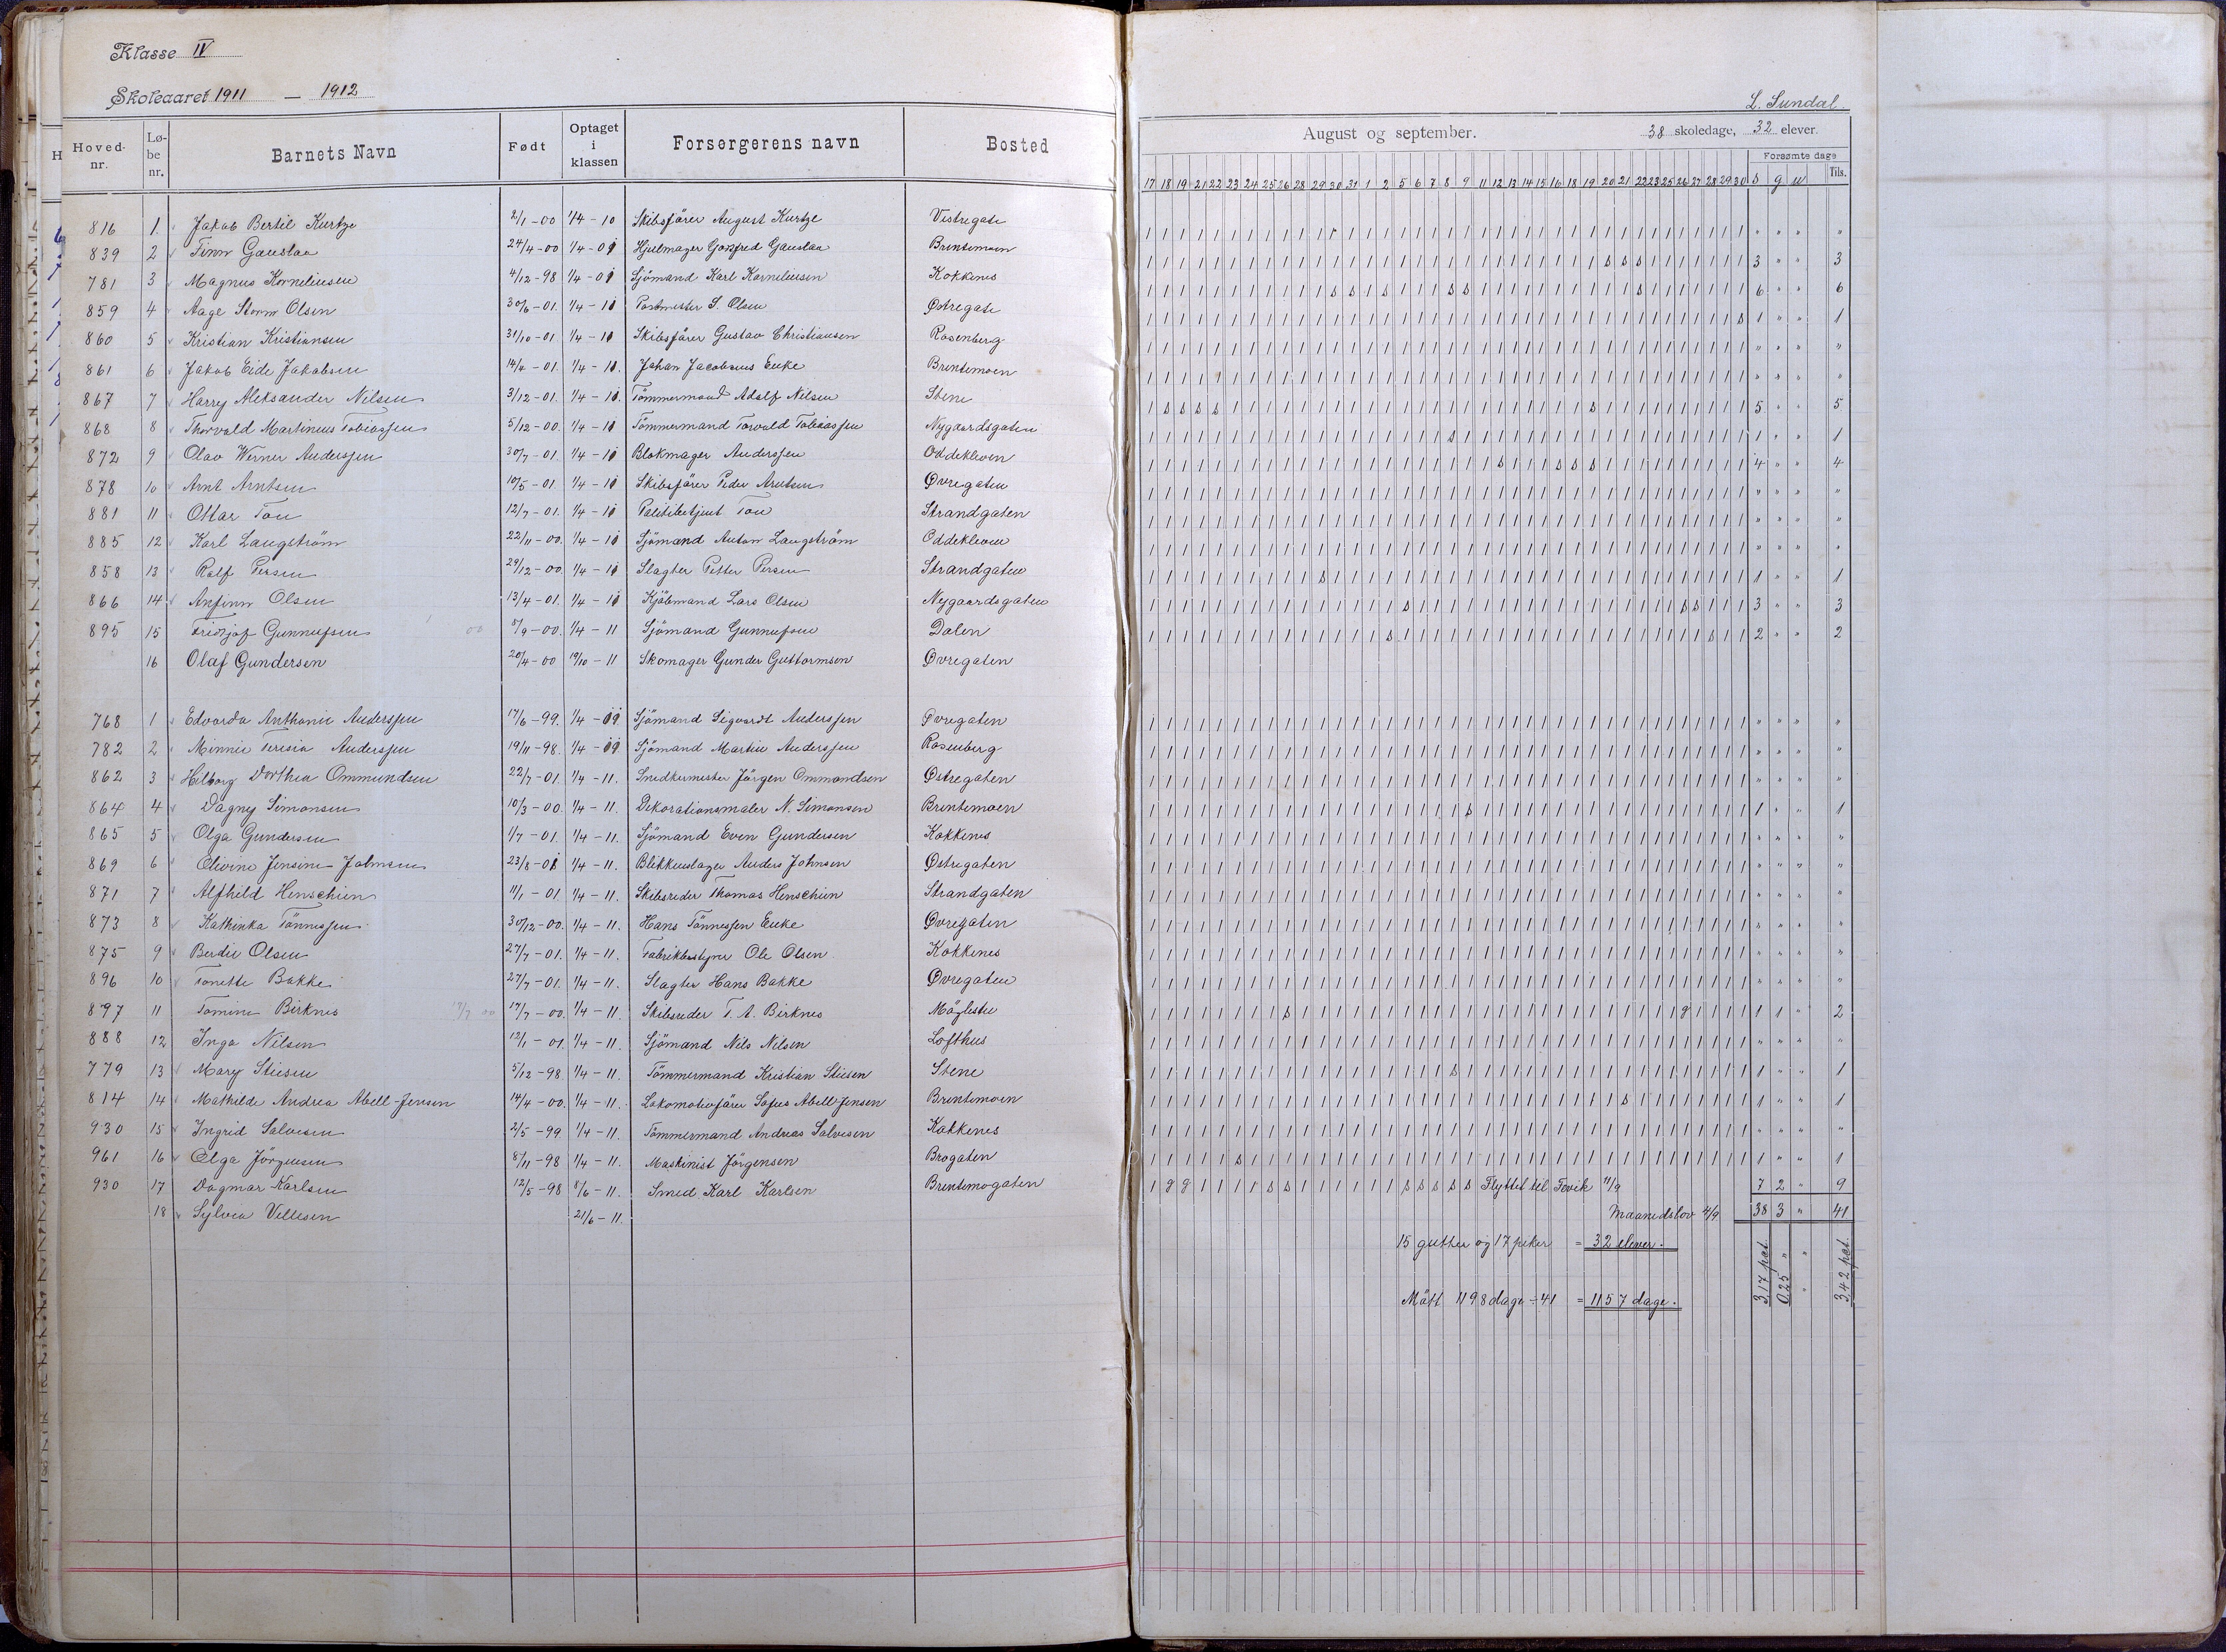 Klasse IV
Skoleaaret 1911 — 1912
L. Sundal
Hoved-nr. Lø-be nr. Barnets Navn Født Optaget i klassen Forsørgerens navn Bosted
August og september. 38 skoledage, 32 elever.
Forsømte dage
17 18 19 21 22 23 24 25 26 28 29 30 31 1 2 5 6 7 8 9 11 12 13 14 15 16 18 19 20 21 22 23 25 26 27 28 29 30 s g u Tils.
816 1. Jakob Bertil Kurtze 2/1-00 1/4-10 Skibsfører August Kurtze Vestregate " " " "
839 2 Finn Gauslaa 24/4-00 1/4-09 Hjulmager Gotfred Gauslaa Brentemoen 3 " " 3
781 3 Magnus Korneliusen 4/12-98 1/4-09 Sjømand Karl Korneliusen Kokkenes 6 " " 6
859 4 Aage Storm Olsen 30/6-01. 1/4-11 Postmester S. Olsen Østregate 1 " " 1
860 5 Kristian Kristiansen 31/10-01. 1/4-11 Skibsfører Gustav Christiansen Rosenberg " " " "
861 6 Jakob Eide Jakobsen 14/4-01. 1/4-11. Johan Jacobsens Enke Brentemoen " " " "
867 7 Harry Aleksander Nilsen 3/12-01. 1/4-11. Tømmermand Adolf Nilsen Stene 5 " " 5
868 8 Thorvald Martinius Tobiassen 5/12-00. 1/4-11 Tømmermand Torvald Tobiassen Nygaardsgaten 1 " " 1
872 9 Olav Werner Anderssen 30/7-01. 1/4-11 Blokmager Anderssen Oddekleven 4 " " 4
878 10 Arnt Arntsen 10/5-01 1/4-11 Skibsfører Peder Arntsen Øvregaten " " " "
881 11 Ottar Tou 12/7-01. 1/4-11 Politibetjent Tou Strandgaten " " " "
885 12 Karl Langstrøm 22/11-00. 1/4-11 Sjømand Anton Langstrøm Oddekleven " " " "
858 13 Rolf Persen 29/12-00. 1/4-11 Slagter Petter Persen Strandgaten 1 " " 1
866 14 Anfinn Olsen 13/4-01. 1/4-11 Kjøbmand Lars Olsen Nygaardsgaten 3 " " 3
895 15 Fridtjof Gunnufsen 8/9-00. 1/4-11 Sjømand Gunnufsen Dalen 2 " " 2
16 Olaf Gundersen 20/4-00 19/10-11 Skomager Gunder Guttormsen Øvregaten
768 1 Edvarda Anthonie Anderssen 17/6-99. 1/4-09 Sjømand Sigvardt Anderssen Øvregaten " " " "
782 2 Minnie Terisia Anderssen 19/11-98. 1/4-09 Sjømand Martin Anderssen Rosenberg " " " "
862 3 Hilborg Dorthea Ommundsen 22/7-01. 1/4-11. Snedkermester Jørgen Ommundsen Østregaten " " " "
864 4 Dagny Simonsen 10/3-00. 1/4-11. Dekorationsmaler N. Simonsen Brentemoen 1 " " 1
865 5 Olga Gundersen 1/7-01. 1/4-11. Sjømand Even Gundersen Kokkenes " " " "
869 6 Olivine Jensine Johnsen 23/8-01 1/4-11. Blikkenslager Anders Johnsen Østregaten " " " "
871 7 Alfhild Henschien 11/1-01 1/4-11. Skibsreder Thomas Henschien Strandgaten " " " "
873 8 Kathinka Tønnessen 30/12-00. 1/4-11. Hans Tønnessen Enke Øvregaten " " " "
875 9 Berdie Olsen 27/7-01. 1/4-11. Fabrikbestyrer Ole Olsen Kokkenes " " " "
896 10 Tonette Bakke 27/7-01. 1/4-11. Slagter Hans Bakke Øvregaten " " " "
897 11 Tomine Birknes 17/7 00 17/7-00. 1/4-11. Skibsreder T. A. Birknes Møglestu 1 1 " 2
888 12 Inga Nilsen 12/1-01. 1/4-11. Sjømand Nils Nilsen Lofthus " " " "
779 13 Mary Stiesen 5/12-98 1/4-11. Tømmermand Kristian Stiesen Stene 1 " " 1
814 14 Mathilde Andrea Abell-Jensen 14/4-00. 1/4-11. Lokomotivfører Sofus Abell-Jensen Brentemoen 1 " " 1
930 15 Ingrid Salvesen 2/5-99 1/4-11. Tømmermand Andreas Salvesen Kokkenes " " " "
961 16 Olga Jørgensen 8/11-98 1/4-11. Maskinist Jørgensen Brogaten 1 " " 1
930 17 Dagmar Karlsen 12/5-98 8/6-11. Smed Karl Karlsen Brentemogaten Flyttet til Fevik 11/9 7 2 " 9
18 Sylvia Vellesen 21/6-11. Maanedslov 4/9 38 3 " 41
15 gutter og 17 piker = 32 elever.
3,17 pct. 0,25 " " 3,42 pct.
Møtt 1198 dage ÷ 41 = 1157 dage.